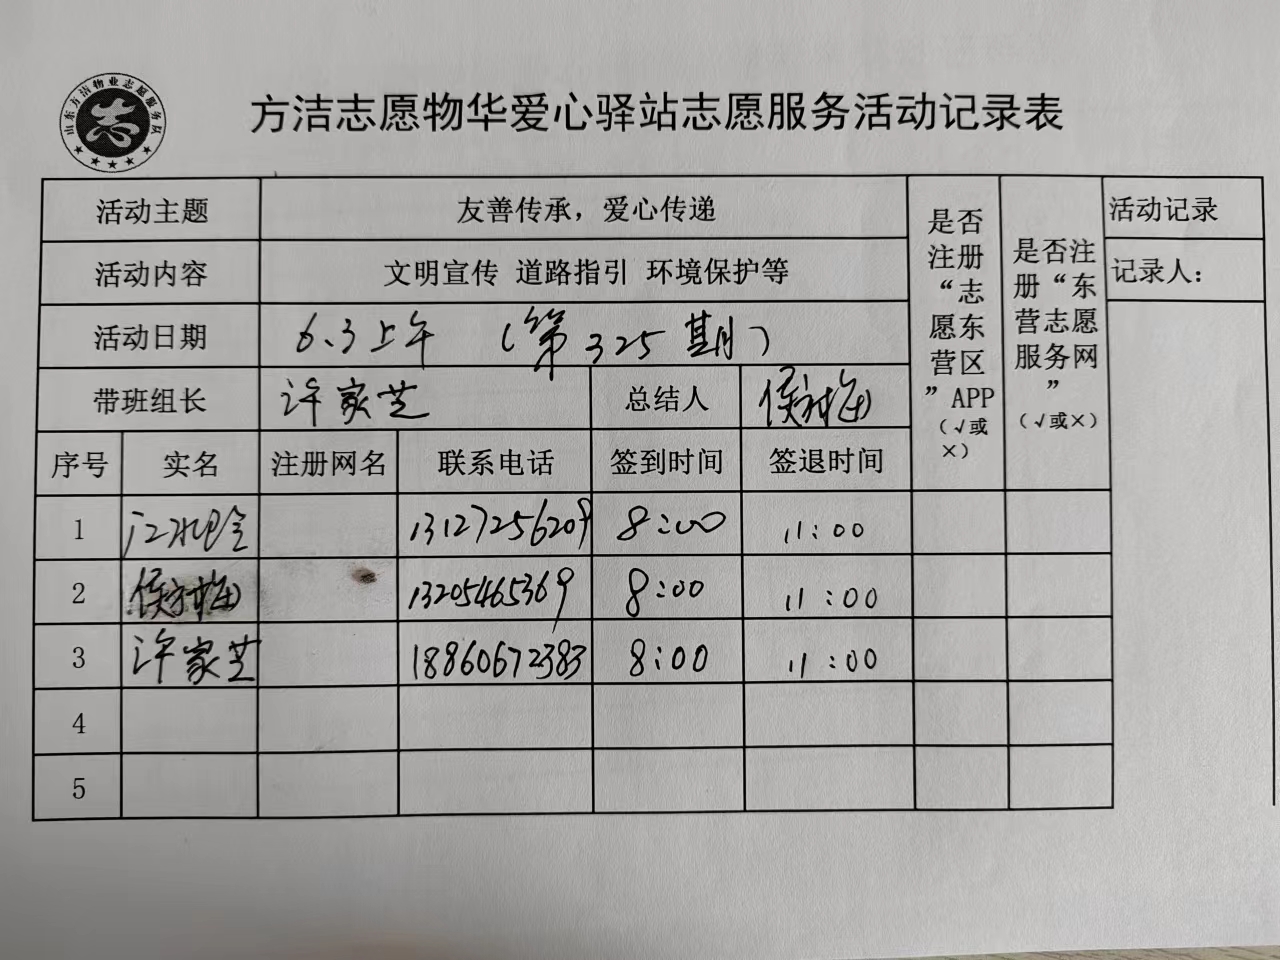 山东方洁物业志愿服务队
方洁志愿物华爱心驿站志愿服务活动记录表
活动主题 友善传承，爱心传递
活动内容 文明宣传 道路指引 环境保护等
活动日期 6.3上午 （第325期）
带班组长 许家芝 总结人
是否注册“志愿东营区”APP（√或×）
是否注册“东营志愿服务网”（√或×）
活动记录
记录人：
序号 实名 注册网名 联系电话 签到时间 签退时间
1 13127256209 8:00 11:00
2 13205465369 8:00 11:00
3 许家芝 18860672383 8:00 11:00
4
5